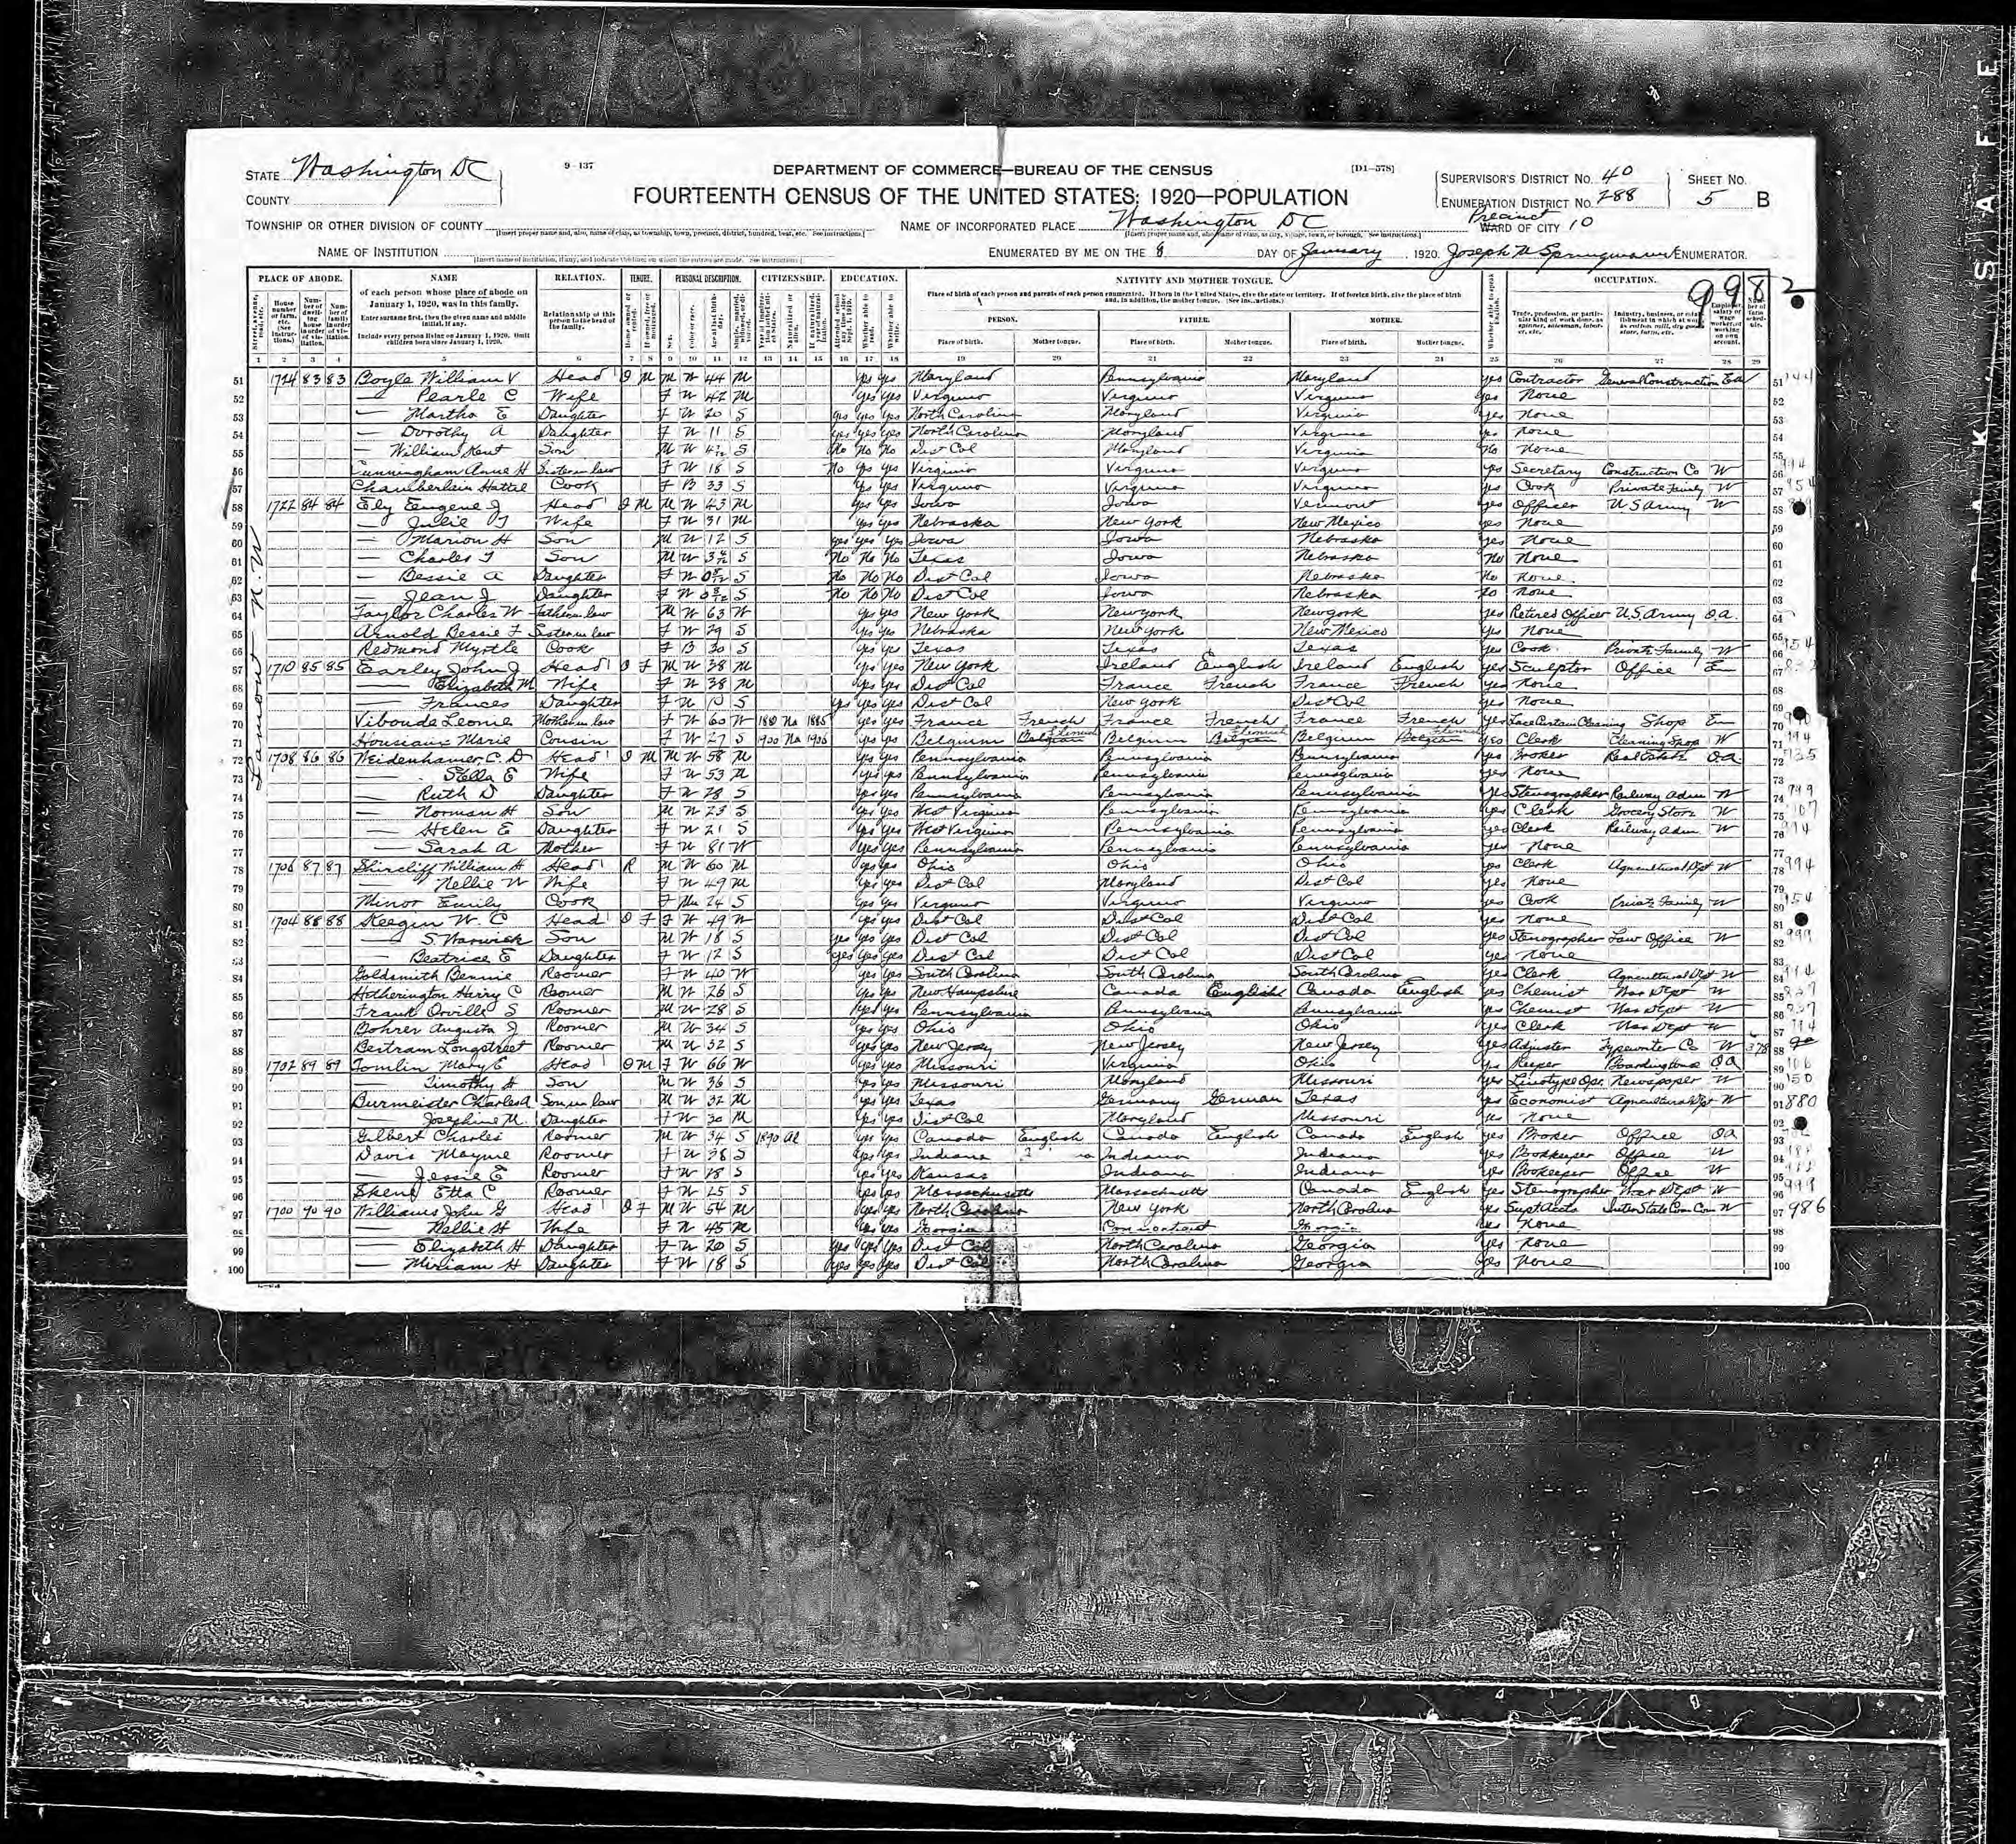 STATE Washington DC
9-137
DEPARTMENT OF COMMERCE—BUREAU OF THE CENSUS
[D1-578]
SUPERVISOR'S DISTRICT No. 40
SHEET No.
COUNTY
FOURTEENTH CENSUS OF THE UNITED STATES: 1920—POPULATION
ENUMERATION DISTRICT No. 288
5 B
TOWNSHIP OR OTHER DIVISION OF COUNTY
NAME OF INCORPORATED PLACE Washington DC
Precinct
WARD OF CITY 10
NAME OF INSTITUTION
ENUMERATED BY ME ON THE 8 DAY OF January, 1920. Joseph ENUMERATOR.
9982
PLACE OF ABODE. NAME RELATION. TENURE. PERSONAL DESCRIPTION. CITIZENSHIP. EDUCATION. NATIVITY AND MOTHER TONGUE. OCCUPATION.
of each person whose place of abode on January 1, 1920, was in this family.
Enter surname first, then the given name and middle initial, if any.
Include every person living on January 1, 1920. Omit children born since January 1, 1920.
Relationship of this person to the head of the family.
Place of birth of each person and parents of each person enumerated. If born in the United States, give the state or territory. If of foreign birth, give the place of birth and, in addition, the mother tongue. (See instructions.)
PERSON. FATHER. MOTHER.
Place of birth. Mother tongue. Place of birth. Mother tongue. Place of birth. Mother tongue.
1 2 3 4 5 6 7 8 9 10 11 12 13 14 15 16 17 18 19 20 21 22 23 24 25 26 27 28 29
Lamont N.W
51 1724 83 83 Boyle William V Head O M M W 44 M yes yes Maryland Pennsylvania Maryland yes Contractor General Construction 51
52 — Pearle C Wife F W 42 M yes yes Virginia Virginia Virginia yes None 52
53 — Martha E Daughter F W 20 S yes yes yes North Carolina Maryland Virginia yes None 53
54 — Dorothy A Daughter F W 11 S yes yes yes North Carolina Maryland Virginia yes None 54
55 — William Kent Son M W S No No No Dist Col Maryland Virginia No None 55
56 Cunningham Anne H Sister in law F W 18 S No yes yes Virginia Virginia Virginia yes Secretary Construction Co W 56
57 Chamberlain Hattie Cook F B 33 S yes yes Virginia Virginia Virginia yes Cook Private Family W 57
58 1722 84 84 Ely Eugene J Head O M M W 43 M yes yes Iowa Iowa Vermont yes Officer US Army W 58
59 — Julie T Wife F W 31 M yes yes Nebraska New York New Mexico yes None 59
60 — Marion H Son M W 12 S yes yes yes Iowa Iowa Nebraska yes None 60
61 — Charles T Son M W S No No No Texas Iowa Nebraska No None 61
62 — Bessie A Daughter F W S No No No Dist Col Iowa Nebraska No None 62
63 — Jean J Daughter F W S No No No Dist Col Iowa Nebraska No None 63
64 Taylor Charles W Father in law M W 63 W yes yes New York New York New York yes Retired Officer U.S. Army O.a. 64
65 Arnold Bessie F Sister in law F W 29 S yes yes Nebraska New York New Mexico yes None 65
66 Redmond Myrtle Cook F B 30 S yes yes Texas Texas Texas yes Cook Private Family W 66
67 1710 85 85 Earley John J Head O F M W 38 M yes yes New York Ireland English Ireland English yes Sculptor Office Em 67
68 — Elizabeth M Wife F W 38 M yes yes Dist Col France French France French yes None 68
69 — Frances Daughter F W 10 S yes yes yes Dist Col New York Dist Col yes None 69
70 Viboude Leonie Mother in law F W 60 W 1880 Na 1885 yes yes France French France French France French yes Lace Curtain Cleaning Shop Em 70
71 Housiaux Marie Cousin F W 27 S 1900 Na 1906 yes yes Belgium Flemish Belgium Flemish Belgium Flemish yes Clerk Cleaning Shop W 71
72 1708 86 86 Neidenhamer C D Head O M M W 58 M yes yes Pennsylvania Pennsylvania Pennsylvania yes Broker Real Estate O.a. 72
73 — Stella E Wife F W 53 M yes yes Pennsylvania Pennsylvania Pennsylvania yes None 73
74 — Ruth D Daughter F W 28 S yes yes Pennsylvania Pennsylvania Pennsylvania yes Stenographer Railway Adm W 74
75 — Norman H Son M W 23 S yes yes West Virginia Pennsylvania Pennsylvania yes Clerk Grocery Store W 75
76 — Helen E Daughter F W 21 S yes yes West Virginia Pennsylvania Pennsylvania yes Clerk Railway Adm W 76
77 — Sarah A Mother F W 81 W yes yes Pennsylvania Pennsylvania Pennsylvania yes None 77
78 1706 87 87 Shircliff William H Head R M W 60 M yes yes Ohio Ohio Ohio yes Clerk Agricultural Dpt W 78 994
79 — Nellie W Wife F W 49 M yes yes Dist Col Maryland Dist Col yes None 79
80 Minor Emily Cook F Mu 24 S yes yes Virginia Virginia Virginia yes Cook Private Family W 80
81 1704 88 88 Keegin W. C Head O F F W 49 W yes yes Dist Col Dist Col Dist Col yes None 81
82 — S. Warwick Son M W 18 S yes yes yes Dist Col Dist Col Dist Col yes Stenographer Law Office W 82
83 — Beatrice E Daughter F W 12 S yes yes yes Dist Col Dist Col Dist Col yes None 83
84 Goldsmith Bennie Roomer F W 40 W yes yes South Carolina South Carolina South Carolina yes Clerk Agricultural Dpt W 84
85 Hetherington Harry C Roomer M W 26 S yes yes New Hampshire Canada English Canada English yes Chemist War Dept W 85
86 Frank Orville S Roomer M W 28 S yes yes Pennsylvania Pennsylvania Pennsylvania yes Chemist War Dept W 86
87 Bohrer Augusta J Roomer M W 34 S yes yes Ohio Ohio Ohio yes Clerk War Dept W 87
88 Bertram Longstreet Roomer M W 32 S yes yes New Jersey New Jersey New Jersey yes Adjuster Typewriter Co W 88
89 1702 89 89 Tomlin Mary E Head O M F W 66 W yes yes Missouri Virginia Ohio yes Keeper Boarding House O a 89
90 — Timothy H Son M W 36 S yes yes Missouri Maryland Missouri yes Linotype Opr. Newspaper W 90
91 Burmeider Charles A Son in law M W 32 M yes yes Texas Germany German Texas yes Economist Agricultural Dpt W 91 880
92 — Josephine M. Daughter F W 30 M yes yes Dist Col Maryland Missouri yes None 92
93 Gilbert Charles Roomer M W 34 S 1890 al yes yes Canada English Canada English Canada English yes Broker Office O a 93
94 Davis Mayme Roomer F W 38 S yes yes Indiana Indiana Indiana yes Bookkeeper Office W 94
95 — Jessie E Roomer F W 28 S yes yes Kansas Indiana Indiana yes Bookeeper Office W 95
96 Skene Etta C Roomer F W 25 S yes yes Massachusetts Massachusetts Canada English yes Stenographer War Dept W 96
97 1700 90 90 Williams John G Head O F M W 54 M yes yes North Carolina New York North Carolina yes Supt Accts Inter State Com Com W 97 986
98 — Nellie H Wife F W 45 M yes yes Georgia Connecticut Georgia yes None 98
99 — Elizabeth H Daughter F W 20 S yes yes yes Dist Col North Carolina Georgia yes None 99
100 — Miriam H Daughter F W 18 S yes yes yes Dist Col North Carolina Georgia yes None 100
SAFE